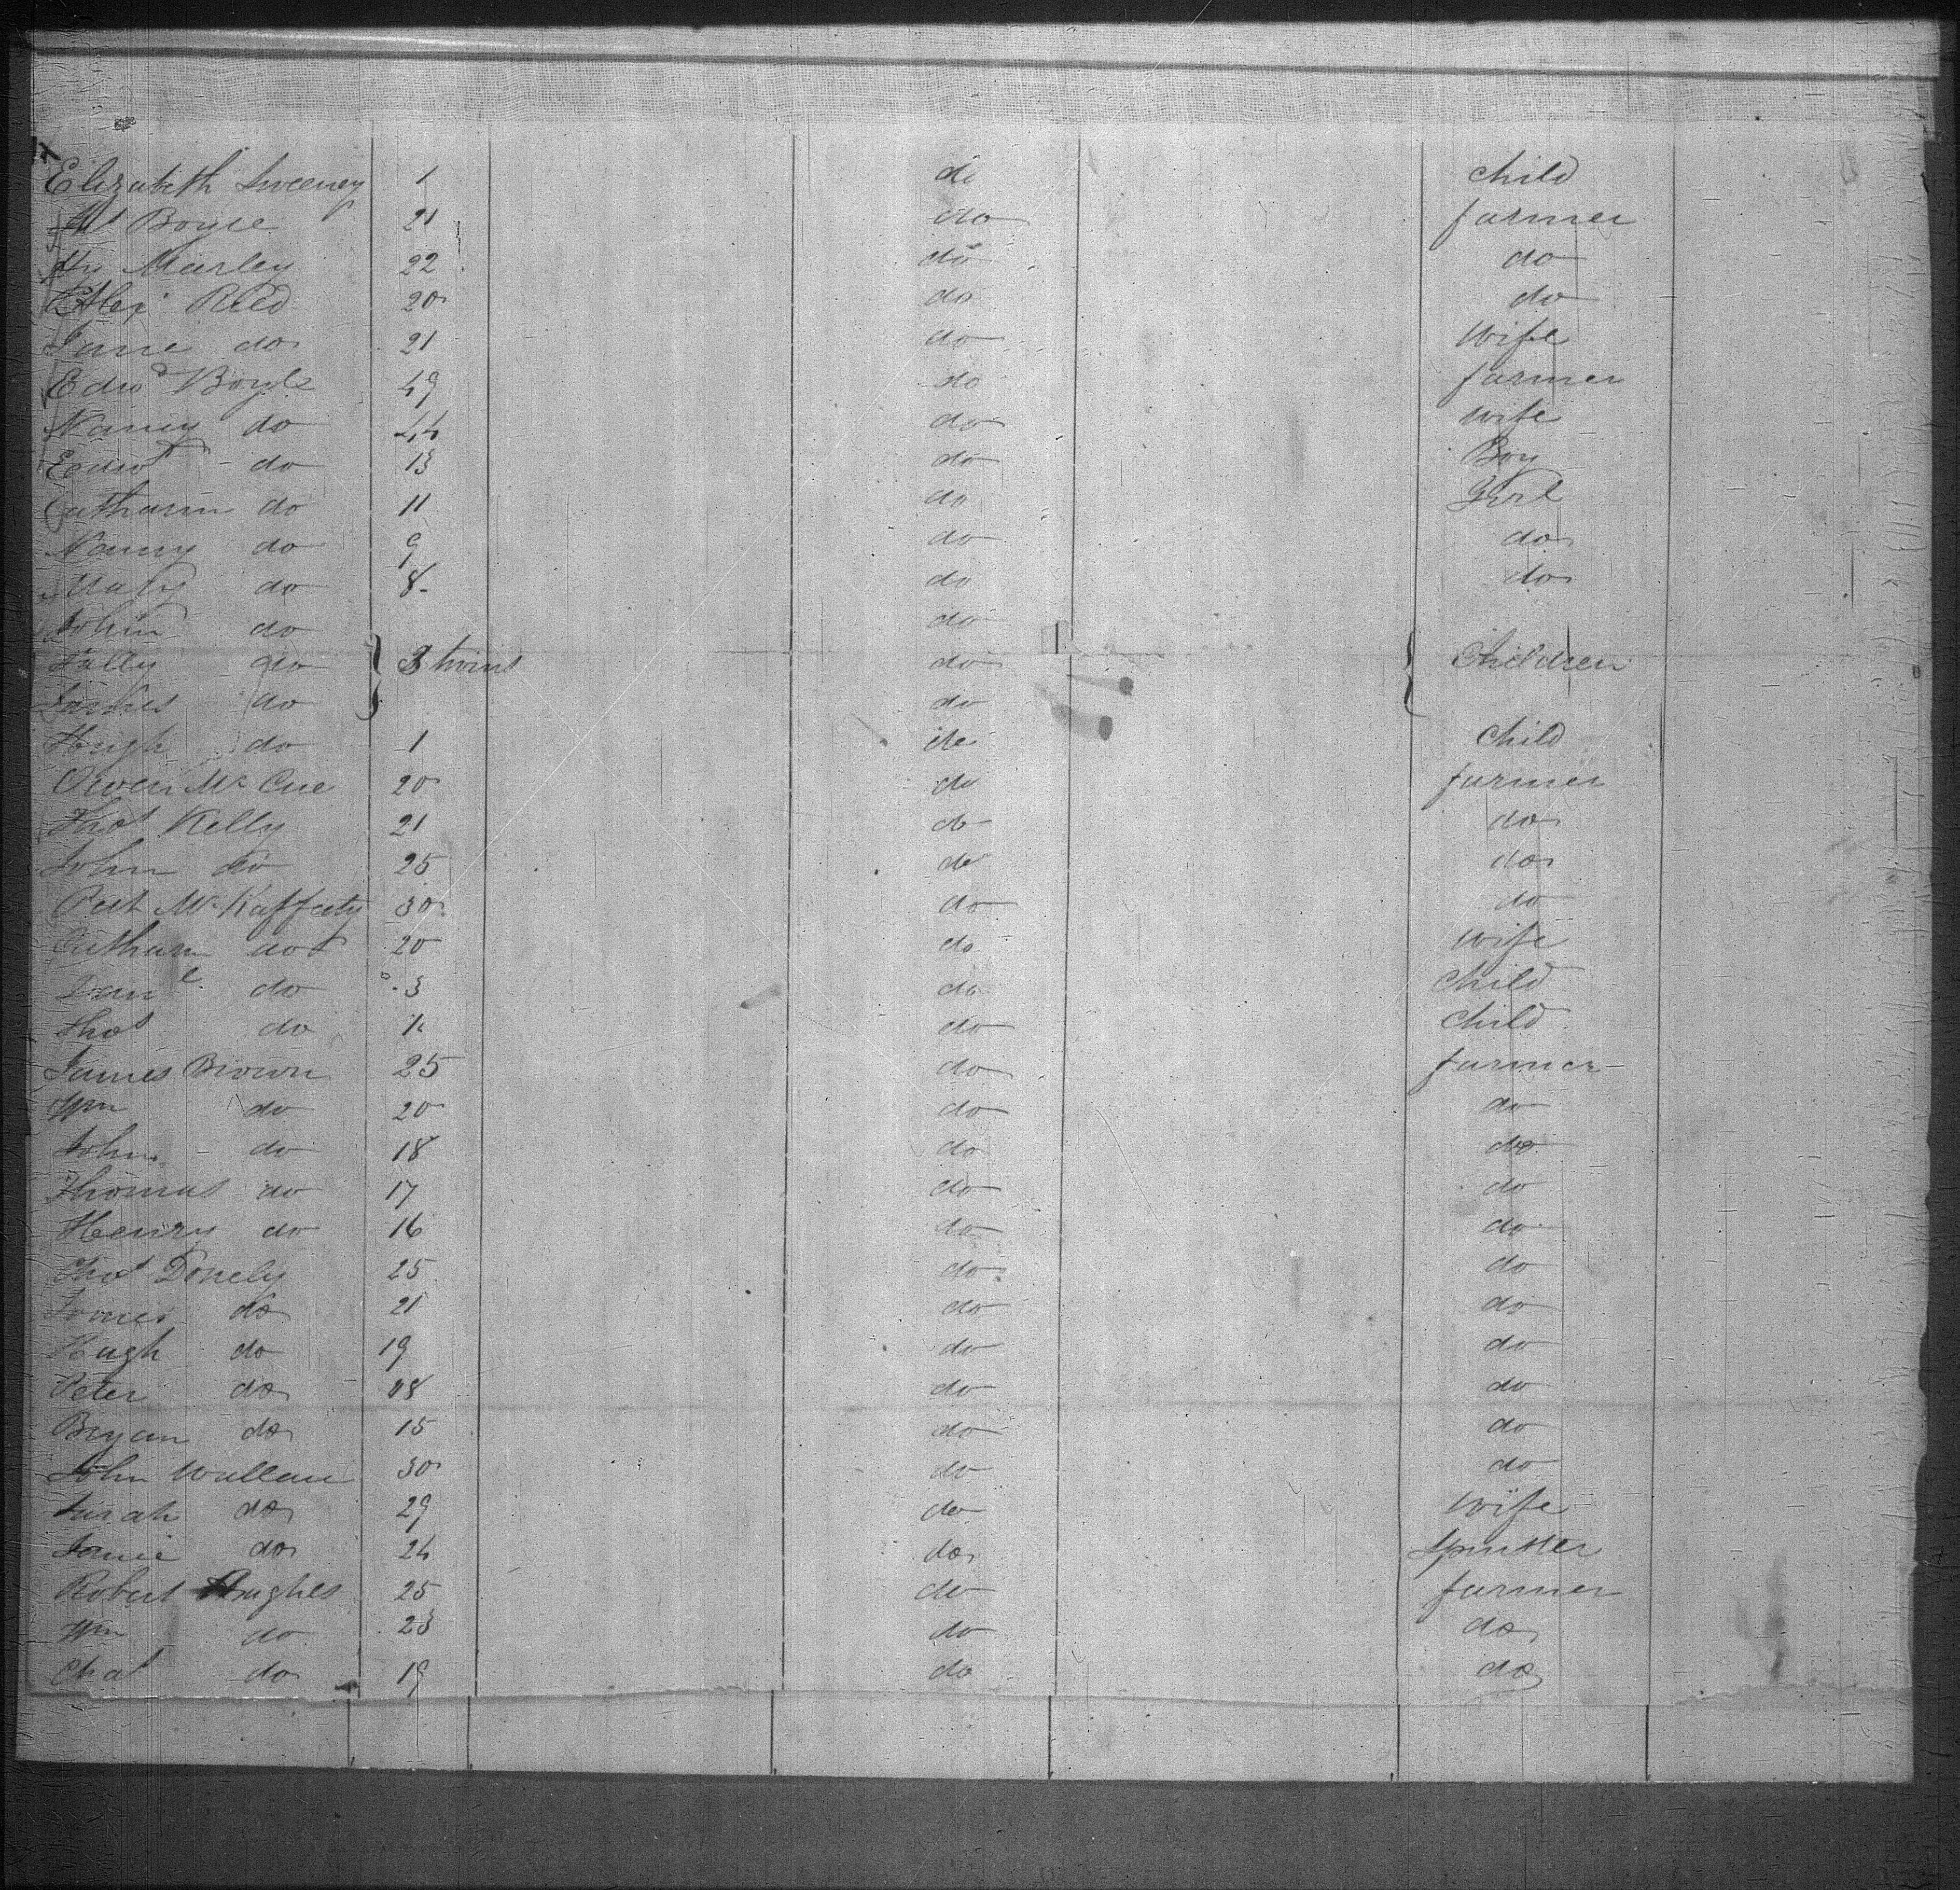 Elizabeth Sweeney 1 do child
Boyce 21 do farmer
Hy Marley 22 do do
Reed 20 do do
Jane do 21 do wife
Edwd Boyle 49 do farmer
Nancy do 44 do wife
Edwd do 13 do Boy
Catharin do 11 do Girl
Nancy do 9 do do
Mary do 8 do do
John do do
do 3 twins do Children
James do do
Hugh do 1 do child
Owen Mc Cue 20 do farmer
Thos Kelly 21 do do
John do 25 do do
Pat Mc Kafferty 30 do do
Catharin do 20 do wife
Danl do 3 do child
Thos do 1 do child
James Brown 25 do farmer
Wm do 20 do do
John do 18 do do
Thomas do 17 do do
Henry do 16 do do
Thos Donely 25 do do
James do 21 do do
Hugh do 19 do do
Peter do 18 do do
Bryan do 15 do do
John Wallace 30 do do
Sarah do 29 do wife
Jane do 24 do Spinster
Robert Hughes 25 do farmer
Wm do 23 do do
Chas do 19 do do